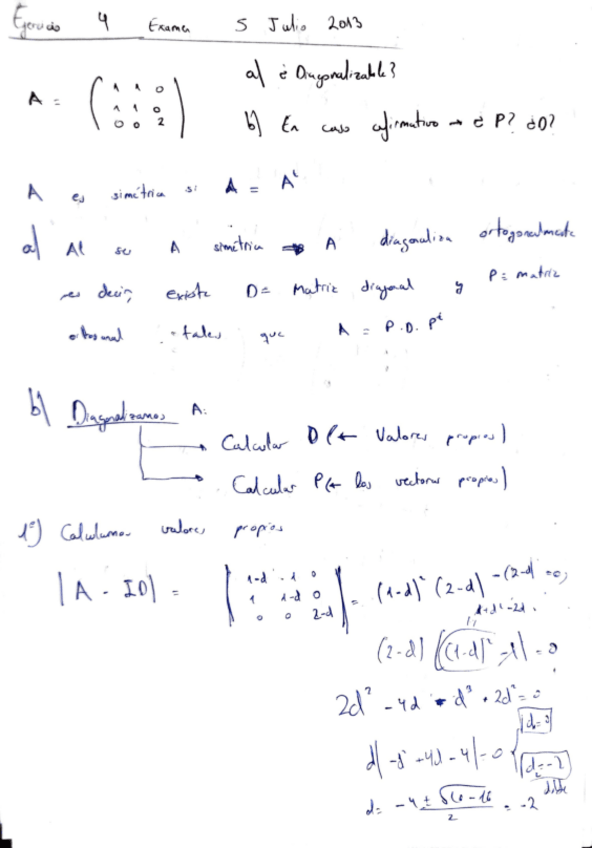 Ejercicio 4 Examen 5 Julio 2013
a) ¿Diagonalizable?
A = ( 1 1 0
1 1 0
0 0 2 )
b) En caso afirmativo → ¿P? ¿D?
A es simétrica si A = Aᵗ
a) Al ser A simétrica ⇒ A diagonaliza ortogonalmente
es decir, existe D = Matriz diagonal y P = matriz
ortogonal tales que A = P.D.Pᵗ
b) Diagonalizamos A:
→ Calcular D (← Valores propios)
→ Calcular P (← los vectores propios)
1º) Calculamos valores propios
|A - ID| = | 1-d 1 0
1 1-d 0
0 0 2-d | = (1-d)² (2-d) -(2-d) = 0;
1+d²-2d
(2-d) ((1-d)² -1) = 0
2d² - 4d - d³ + 2d² = 0
d(-d² + 4d - 4) = 0 { d=0
d=-2
doble
d = -4 ± √16-16 / 2 = -2